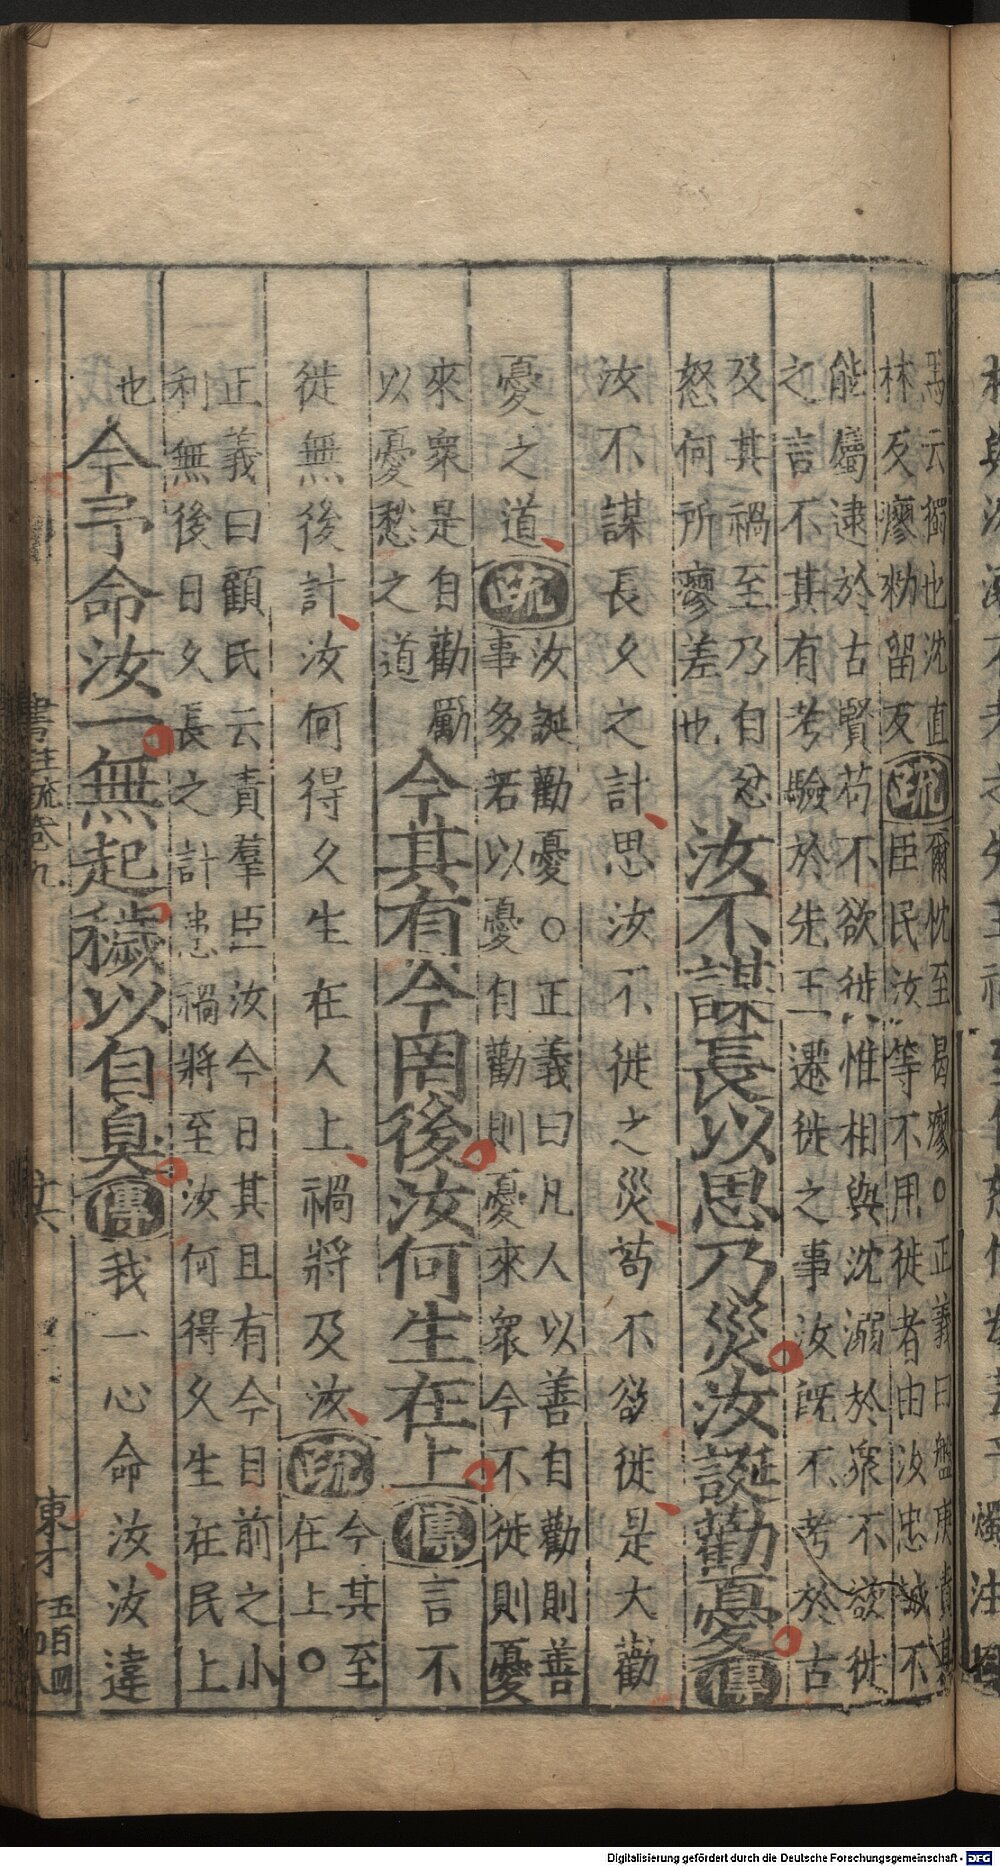 馬云獨也沈直
林反瘳勑留反疏爾忱至曷瘳○正義曰盤庚責其
臣民汝等不用徙者由汝忠誠不
能屬逮於古賢苟不欲徙惟相與沈溺於衆不欲徙
之言不其有考驗於先王遷徙之事汝旣不考於古
及其禍至乃自忿
怒何所瘳差也
汝不謀長以思乃災汝誕勸憂傳
汝不謀長久之計思汝不徙之災苟不欲徙是大勸
憂之道疏汝誕勸憂○正義曰凡人以善自勸則善
事多若以憂自勸則憂來衆今不徙則憂
來衆是自勸勵
以憂愁之道
今其有今罔後汝何生在上傳言不
徙無後計汝何得久生在人上禍將及汝疏今其至
在上○
正義曰顧氏云責羣臣汝今日其且有今目前之小
利無後日久長之計患禍將至汝何得久生在民上
也今予命汝一無起穢以自臭傳我一心命汝汝違
書注疏卷九
陳才
五百四
Digitalisierung gefördert durch die Deutsche Forschungsgemeinschaft - DFG